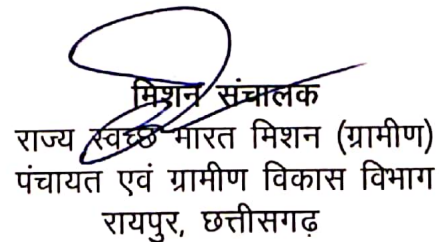 मिशन संचालक
राज्य स्वच्छ भारत मिशन (ग्रामीण)
पंचायत एवं ग्रामीण विकास विभाग
रायपुर, छत्तीसगढ़